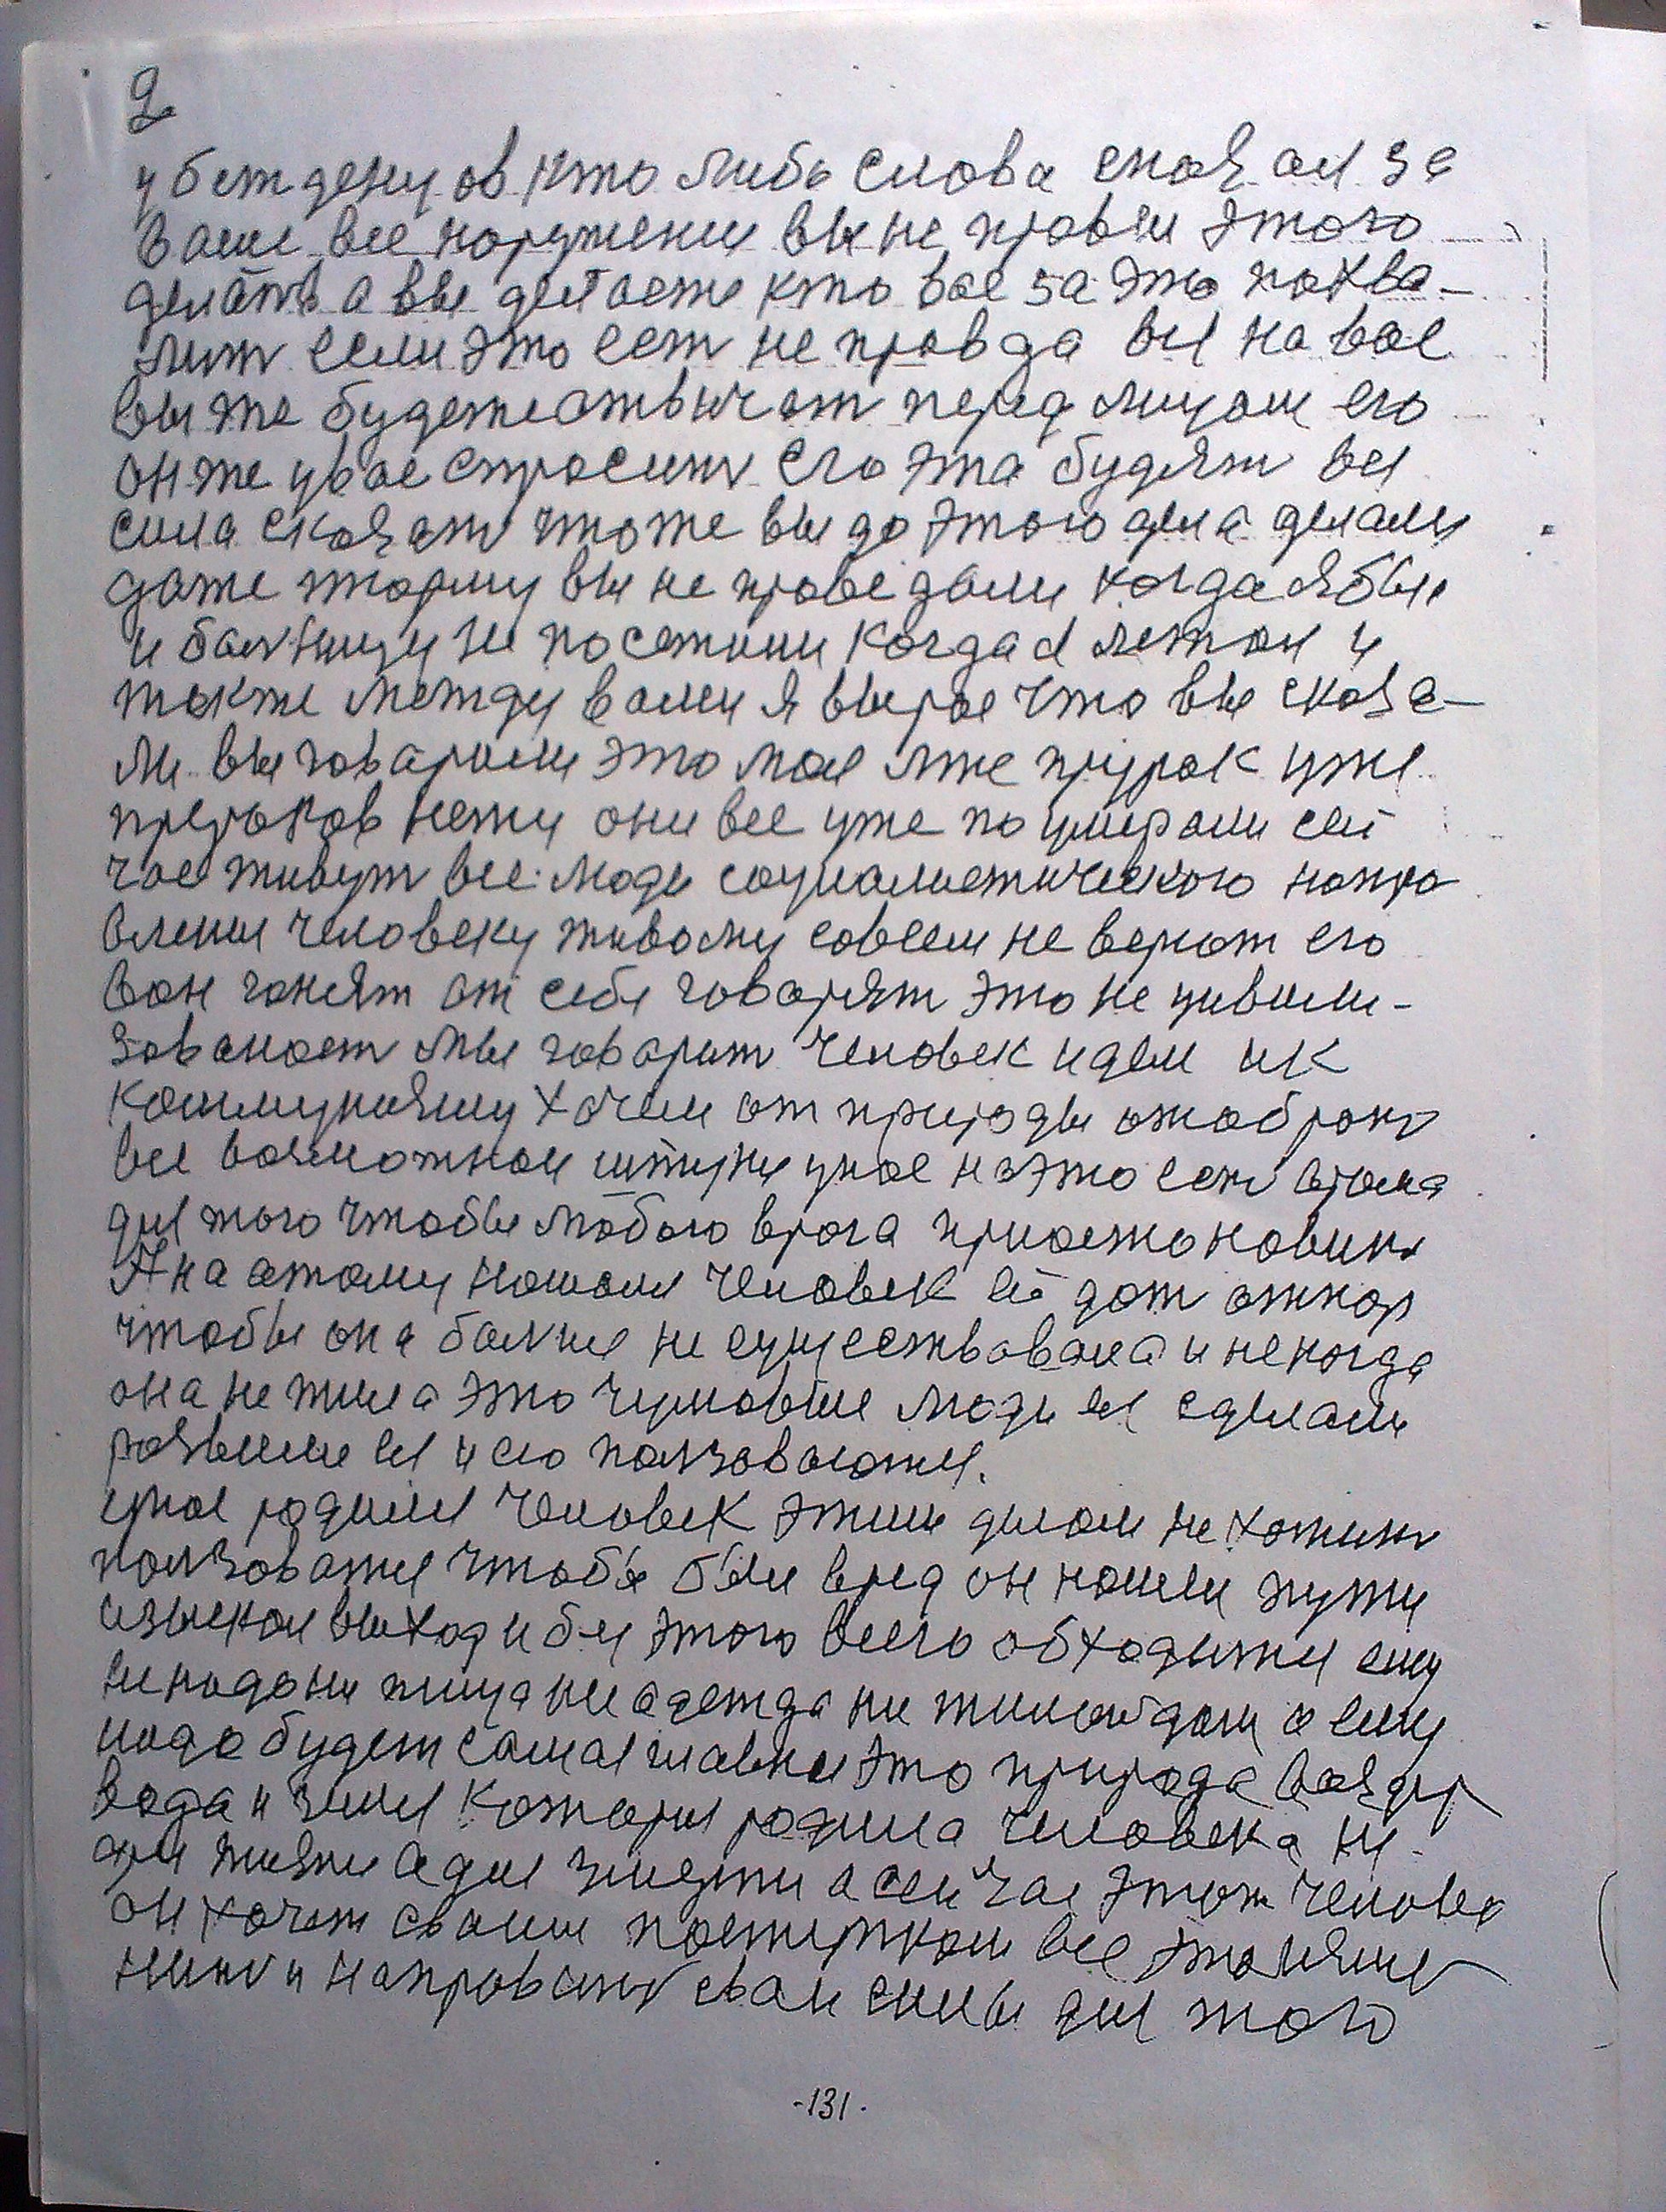 2
у беждену ов кто либо слова сказал за
ваше все нарушение вы не правы этого
делать а вы делаете кто вас за это похва-
лит если это ест не правда вы на вас
вы же будете отвичат перед лицом его
он же у вас спросит его эта будят вся
сила сказат что же вы до этого дела делали
даже тюрму вы не праведали когда я был
и балницу не посетили когда я лежал и
также между вами я вырас что вы сказа-
ли вы говарили это мая лже прурок уже
прероков нету они все уже по умерали сей
час живут все люди социалистического напра
вления человеку живому совсем не верют его
вон гонят от себя говарят это не цивили-
заваност мы говарит человек идем ик
коммунизму хочем от природы отобрат
все возможнои у нас на это ест время
для того чтобы любого врага приостановит
А на атому нашолся человек ей дат отпор
чтобы она балше не существавала и некогда
она не жила это чумовые люди ея сделали
развили ея и ею ползаваются.
у нас родился человек этим делом не хотит
ползоватя чтобы был вред он нашел пути
изыскал выход и без этого всего обходится ему
ненадо ни пища ни одежда ни жилой дом а ему
надо будет самая главная это природа воздух
вода и земля которыя родила человека не
для жизни а для смерти а сейчас этот человек
он хочет своим поступком все это изме
нит и направит сваи силы для того
-131-